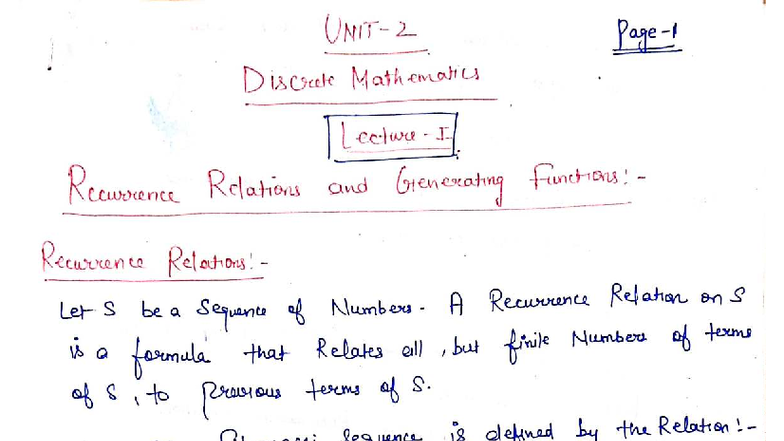 UNIT-2
Page-1
Discrete Mathematics
Lecture-I
Recurrence Relations and Generating Functions:-
Recurrence Relations:-
Let S be a Sequence of Numbers. A Recurrence Relation on S
is a formula that Relates all, but finite Numbers of terms
of S, to previous terms of S.
sequence is defined by the Relation:-